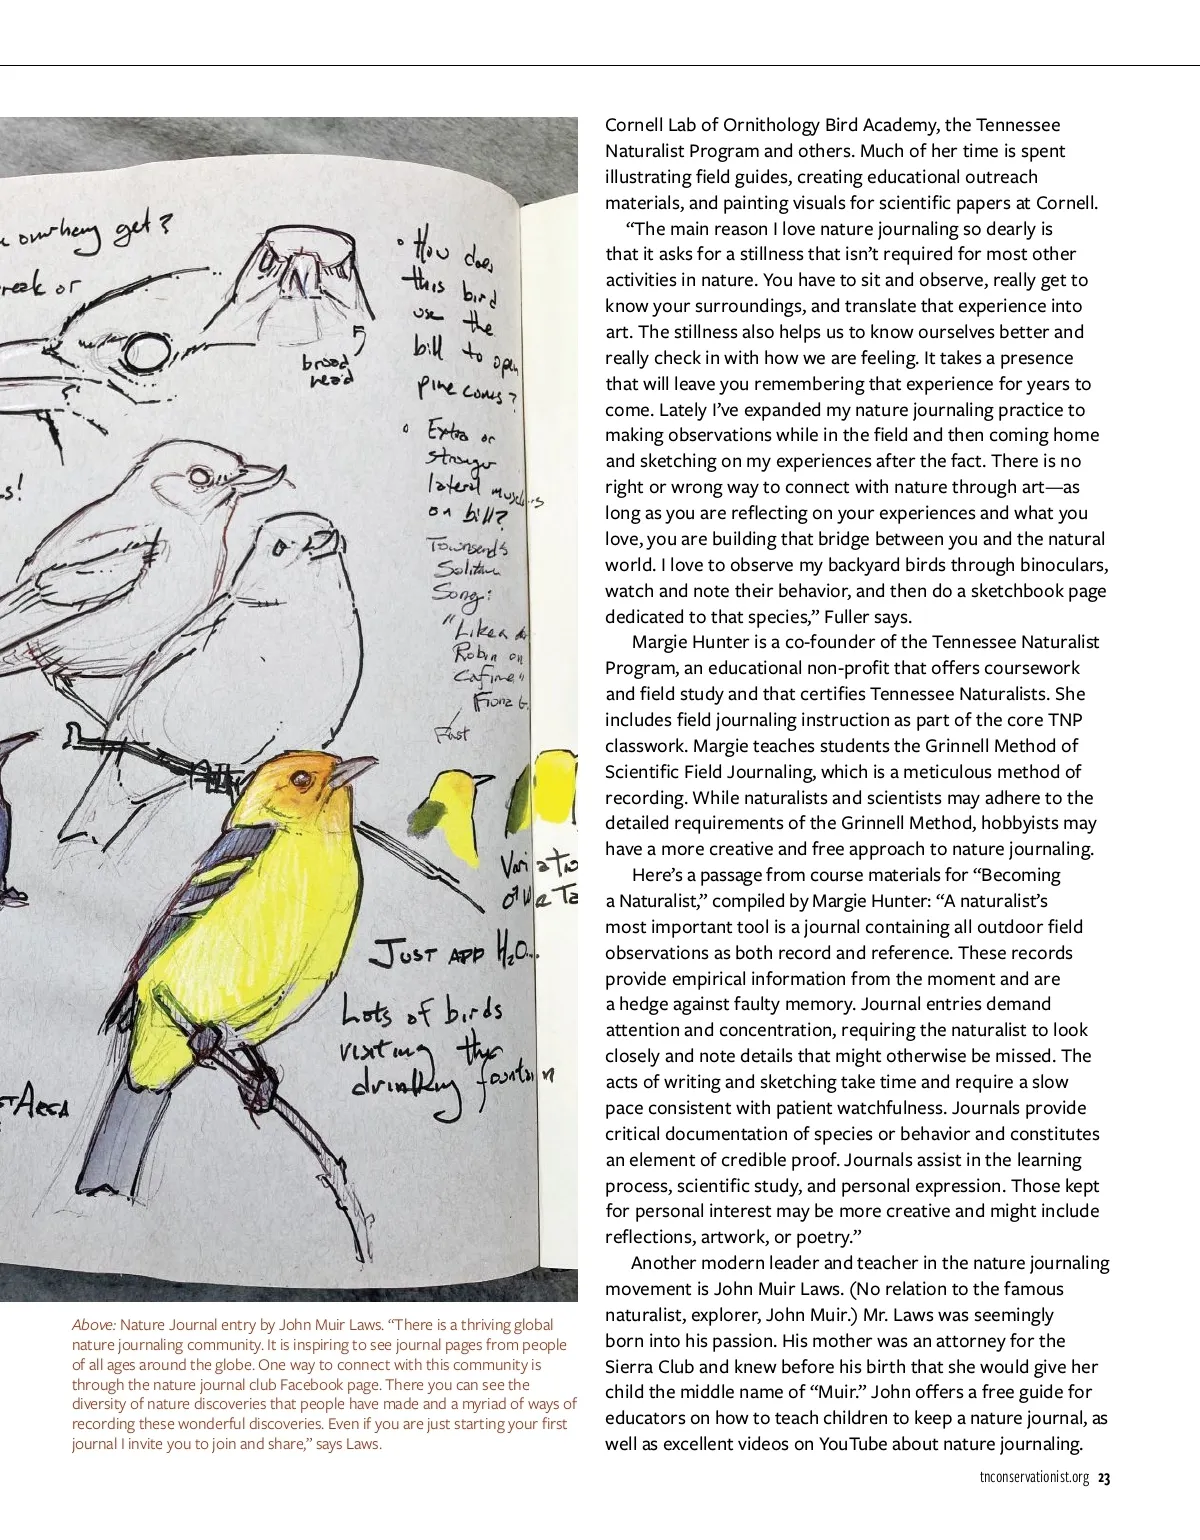 get?
reak or
broad
head
s!
• How does
this bird
use the
bill to open
pine cones?
• Extra or
stronger
lateral muscles
on bill?
Townsend's
Solitaire
Song:
"Like a
Robin on
Caffine"
Fiona G.
Fast
of
Just add H₂O...
Lots of birds
visiting the
drinking fountain
Area
Above: Nature Journal entry by John Muir Laws. “There is a thriving global
nature journaling community. It is inspiring to see journal pages from people
of all ages around the globe. One way to connect with this community is
through the nature journal club Facebook page. There you can see the
diversity of nature discoveries that people have made and a myriad of ways of
recording these wonderful discoveries. Even if you are just starting your first
journal I invite you to join and share,” says Laws.
Cornell Lab of Ornithology Bird Academy, the Tennessee
Naturalist Program and others. Much of her time is spent
illustrating field guides, creating educational outreach
materials, and painting visuals for scientific papers at Cornell.
“The main reason I love nature journaling so dearly is
that it asks for a stillness that isn’t required for most other
activities in nature. You have to sit and observe, really get to
know your surroundings, and translate that experience into
art. The stillness also helps us to know ourselves better and
really check in with how we are feeling. It takes a presence
that will leave you remembering that experience for years to
come. Lately I’ve expanded my nature journaling practice to
making observations while in the field and then coming home
and sketching on my experiences after the fact. There is no
right or wrong way to connect with nature through art—as
long as you are reflecting on your experiences and what you
love, you are building that bridge between you and the natural
world. I love to observe my backyard birds through binoculars,
watch and note their behavior, and then do a sketchbook page
dedicated to that species,” Fuller says.
Margie Hunter is a co-founder of the Tennessee Naturalist
Program, an educational non-profit that offers coursework
and field study and that certifies Tennessee Naturalists. She
includes field journaling instruction as part of the core TNP
classwork. Margie teaches students the Grinnell Method of
Scientific Field Journaling, which is a meticulous method of
recording. While naturalists and scientists may adhere to the
detailed requirements of the Grinnell Method, hobbyists may
have a more creative and free approach to nature journaling.
Here’s a passage from course materials for “Becoming
a Naturalist,” compiled by Margie Hunter: “A naturalist’s
most important tool is a journal containing all outdoor field
observations as both record and reference. These records
provide empirical information from the moment and are
a hedge against faulty memory. Journal entries demand
attention and concentration, requiring the naturalist to look
closely and note details that might otherwise be missed. The
acts of writing and sketching take time and require a slow
pace consistent with patient watchfulness. Journals provide
critical documentation of species or behavior and constitutes
an element of credible proof. Journals assist in the learning
process, scientific study, and personal expression. Those kept
for personal interest may be more creative and might include
reflections, artwork, or poetry.”
Another modern leader and teacher in the nature journaling
movement is John Muir Laws. (No relation to the famous
naturalist, explorer, John Muir.) Mr. Laws was seemingly
born into his passion. His mother was an attorney for the
Sierra Club and knew before his birth that she would give her
child the middle name of “Muir.” John offers a free guide for
educators on how to teach children to keep a nature journal, as
well as excellent videos on YouTube about nature journaling.
tnconservationist.org 23